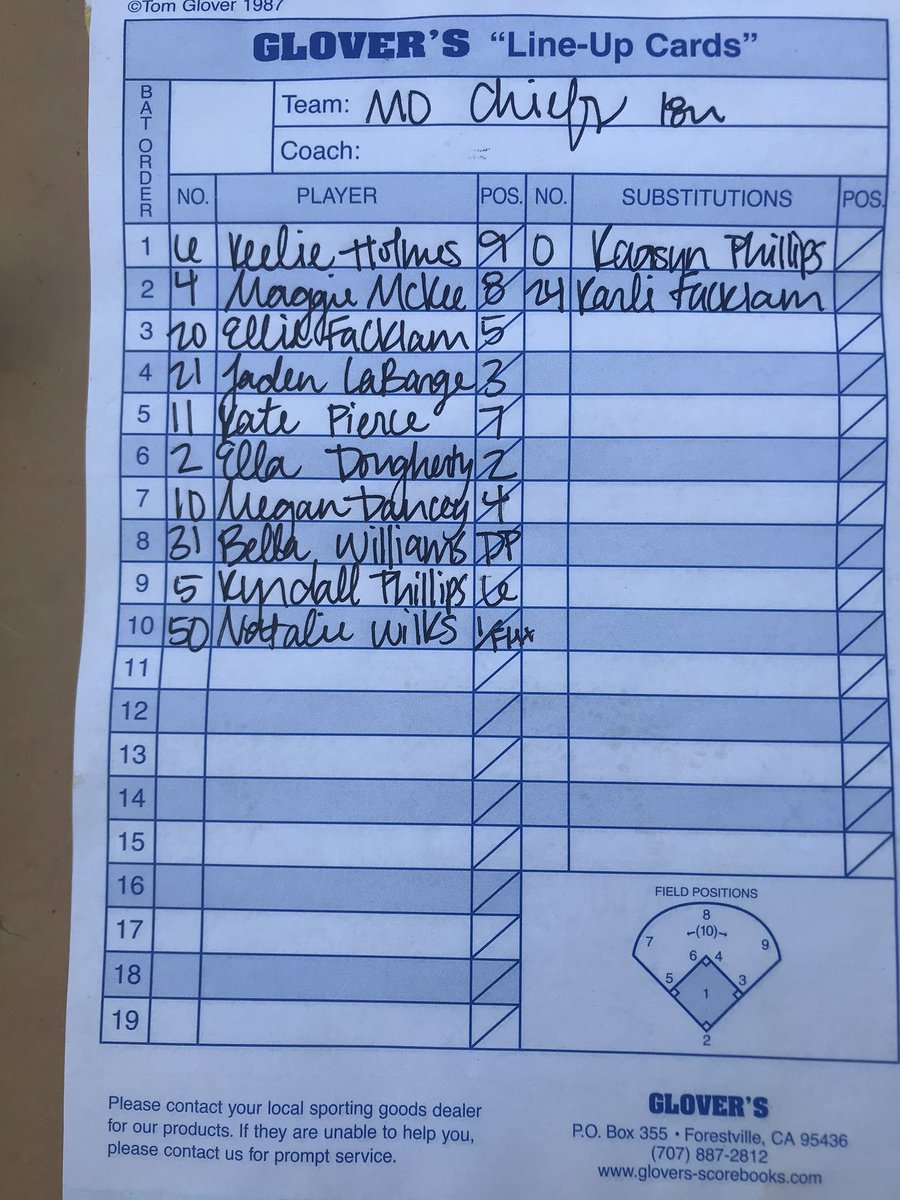 ©Tom Glover 1987
GLOVER'S "Line-Up Cards"
BAT ORDER
Team: MO Chiefs 18u
Coach:
NO. PLAYER POS. NO. SUBSTITUTIONS POS.
1 6 Keelie Holmes 9 0 Phillips
2 4 Maggie McKee 8 24 Karli Facklam
3 20 Ellie Facklam 5
4 21 Jaden LaBarge 3
5 11 Kate Pierce 7
6 2 Ella Dougherty 2
7 10 Megan Dancey 4
8 31 Bella Williams DP
9 5 Kyndall Phillips 6
10 50 Nattalie Wilks 1/Flex
11
12
13
14
15
16
17
18
19
FIELD POSITIONS
8
(10)
7 9
6 4
5 3
1
2
Please contact your local sporting goods dealer
for our products. If they are unable to help you,
please contact us for prompt service.
GLOVER'S
P.O. Box 355 • Forestville, CA 95436
(707) 887-2812
www.glovers-scorebooks.com